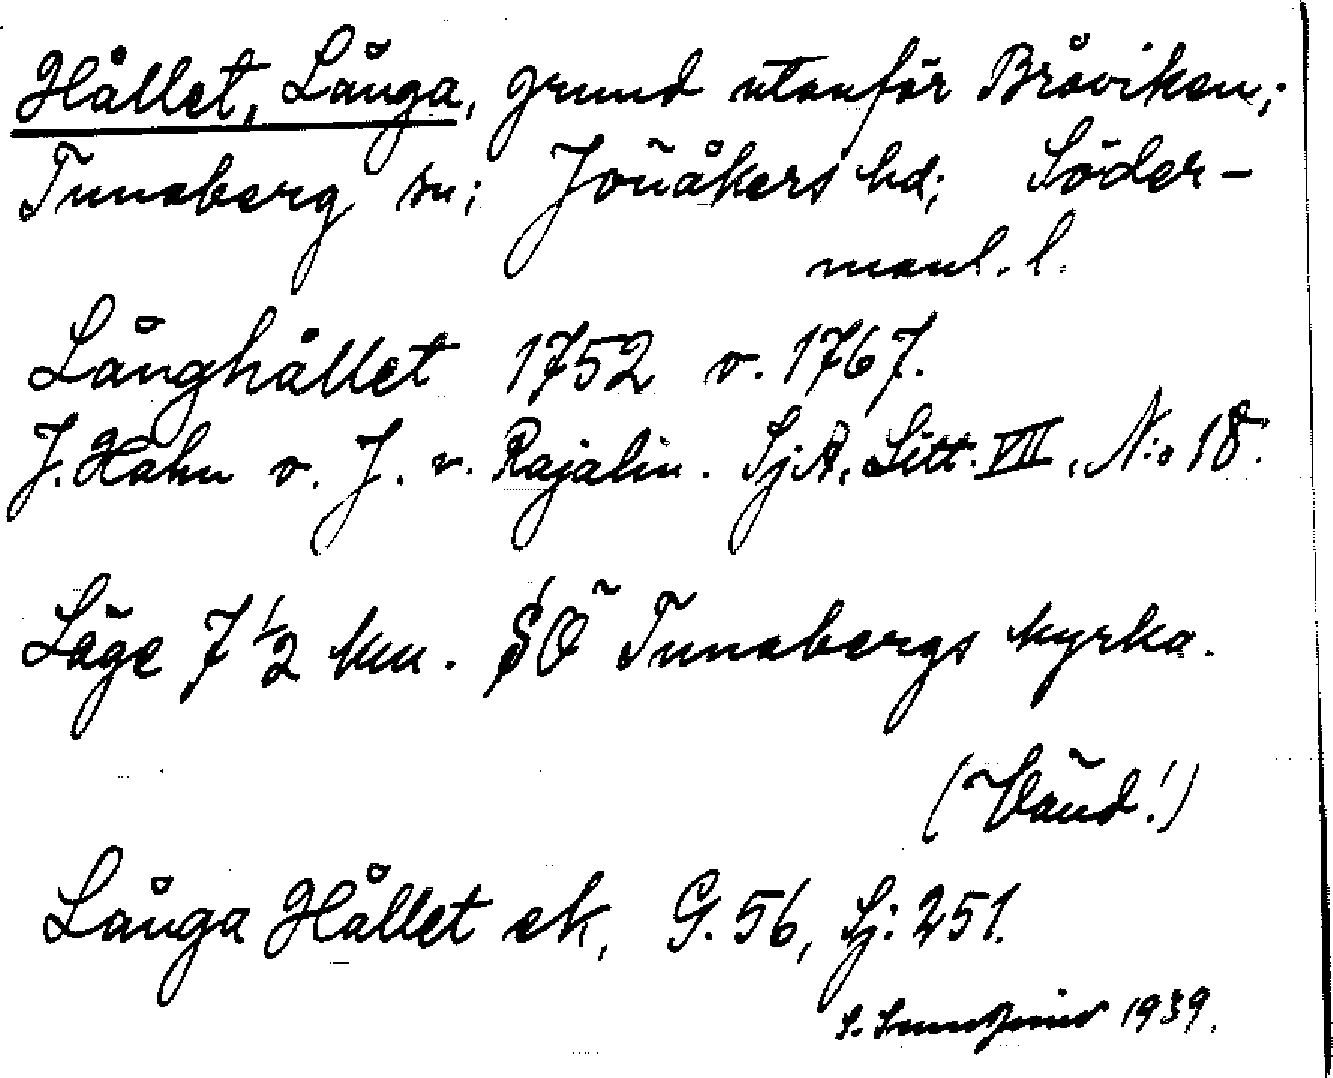 Hållet, Långa, grund utanför Bråviken;
Tunaberg sn; Jönåkers hd; Söder-
manl. l.
Långhållet 1752 o. 1767.
J. Hahn o. J. v. Rajalin. SjA, Litt. VII, N:o 18.
Läge 7 1/2 km. SÖ Tunabergs kyrka.
(Vänd!)
Långa Hållet ek, G. 56, Sj: 251.
1939.